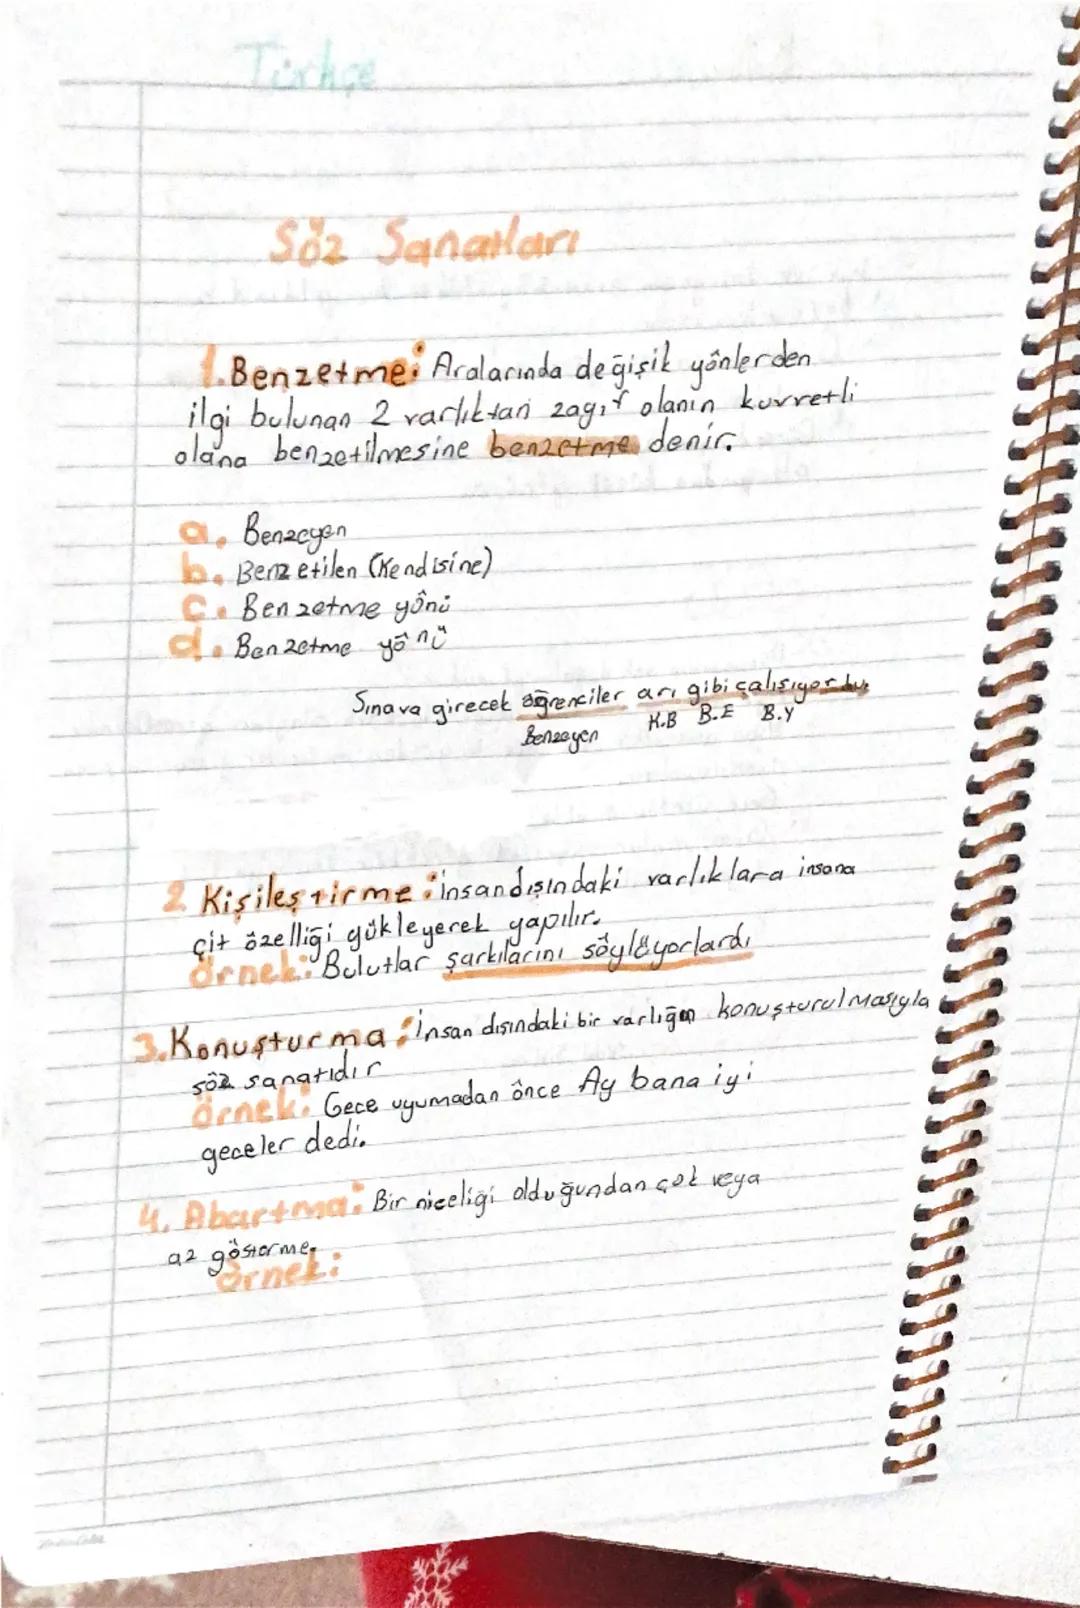 Türkçe
Söz Sanatları
1. Benzetme: Aralarında değişik yönlerden
ilgi bulunan 2 varlıktan zayıf olanın kuvvetli
olana benzetilmesine benzetme denir.
a. Benzeyen
b. Benzetilen (Kendisine)
c. Benzetme yönü
d. Benzetme yönü
Sınava girecek öğrenciler arı gibi çalışıyordu.
K.B B.E B.Y
Benzeyen
2 Kişileştirme: insan dışındaki varlıklara insana
çit özelliği yükleyerek yapılır.
Örnek: Bulutlar şarkılarını söylüyorlardı
3. Konuşturma: İnsan dışındaki bir varlığın konuşturulmasıyla
söz sanatıdır
Örnek: Gece uyumadan önce Ay bana iyi
geceler dedi.
4. Abartma: Bir niceliği olduğundan çok veya
az gösterme.
Örnek: